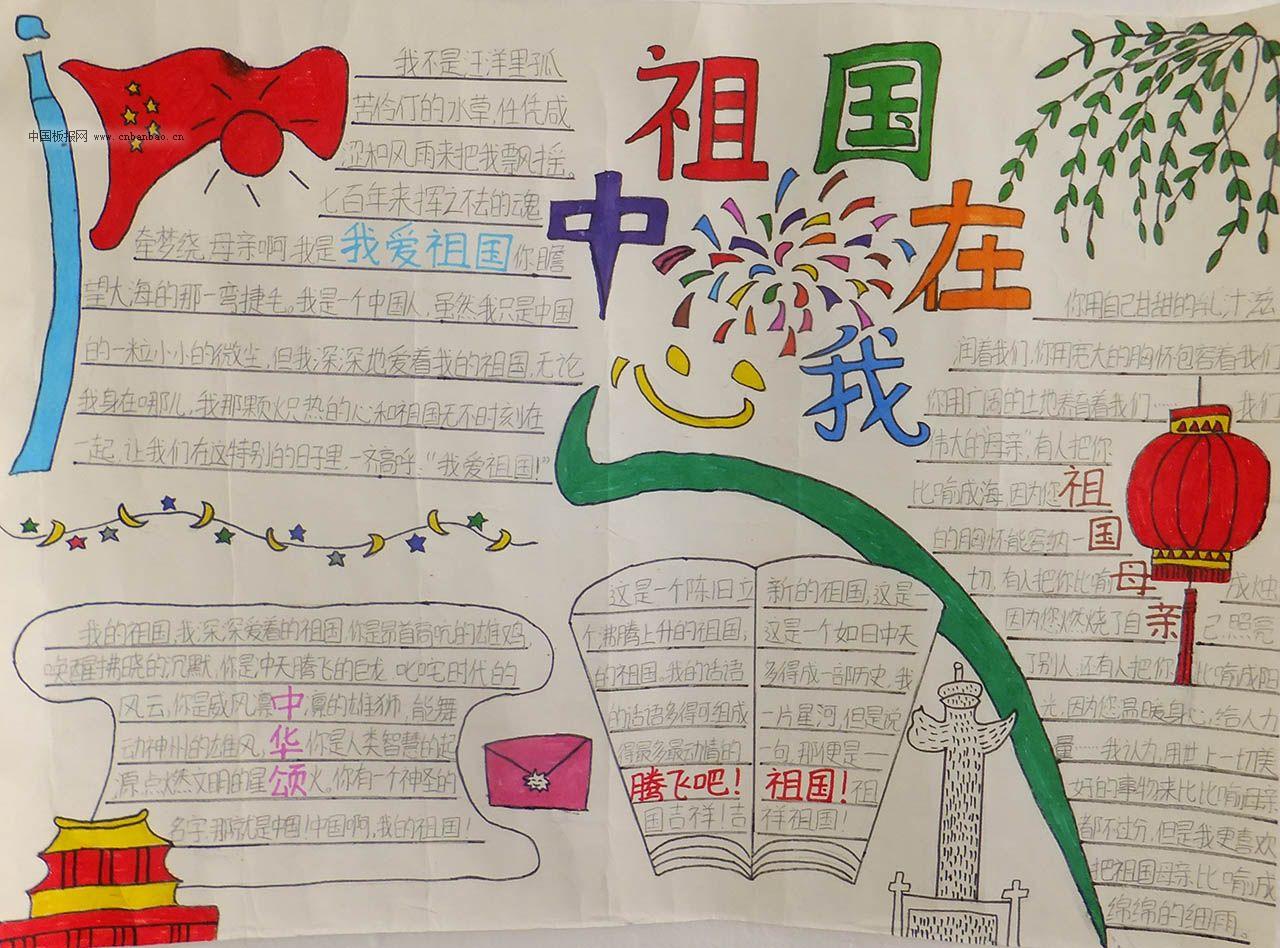 中国板报网 www.cnbanbao.cn
祖国
中 在
心 我
我不是汪洋里孤
苦伶仃的水草,任凭咸
涩和风雨来把我飘摇。
七百年来挥之不去的魂
牵梦绕,母亲啊,我是我爱祖国你瞻
望大海的那一弯捷毛。我是一个中国人,虽然我只是中国
的一粒小小的微尘,但我深深地爱着我的祖国,无论
我身在哪儿,我那颗火只热的心和祖国无不时刻在
一起,让我们在这特别的日子里,一齐高呼:“我爱祖国!”
我的祖国,我深深爱着的祖国,你是昂首高吭的雄鸡,
唤醒拂晓的沉默,你是冲天腾飞的巨龙,叱咤时代的
风云,你是威风凛中凛的雄狮,能舞
动神州的雄风,华你是人类智慧的起
原点燃文明的星颂火。你有一个神圣的
名字,那就是中国!中国啊,我的祖国!
这是一个陈旧立
个沸腾上升的祖国;
的祖国。我的话语
的话语多得可组成
得最多最动情的
腾飞吧!
国吉祥!吉
新的祖国,这是一
这是一个如日中天
多得成一部历史,我
一片星河,但是说
一句,那便是一
祖国!祖
祥祖国!
你用自己甘甜的乳汁滋
润着我们,你用宽大的胸怀包容着我们
你用广阔的土地养育着我们…… 我们
伟大的“母亲”,有人把你
比喻成海,因为您祖
的胸怀能容纳一国
切,有人把你比喻母 成烛
因为您燃烧了自亲己,照亮
了别人,还有人把你 比喻成阳
光,因为您温暖身心,给人力
量……我认为,用世上一切美
好的事物来比比喻母亲
都不过分,但是我更喜欢
把祖国母亲比喻成
绵绵的细雨。